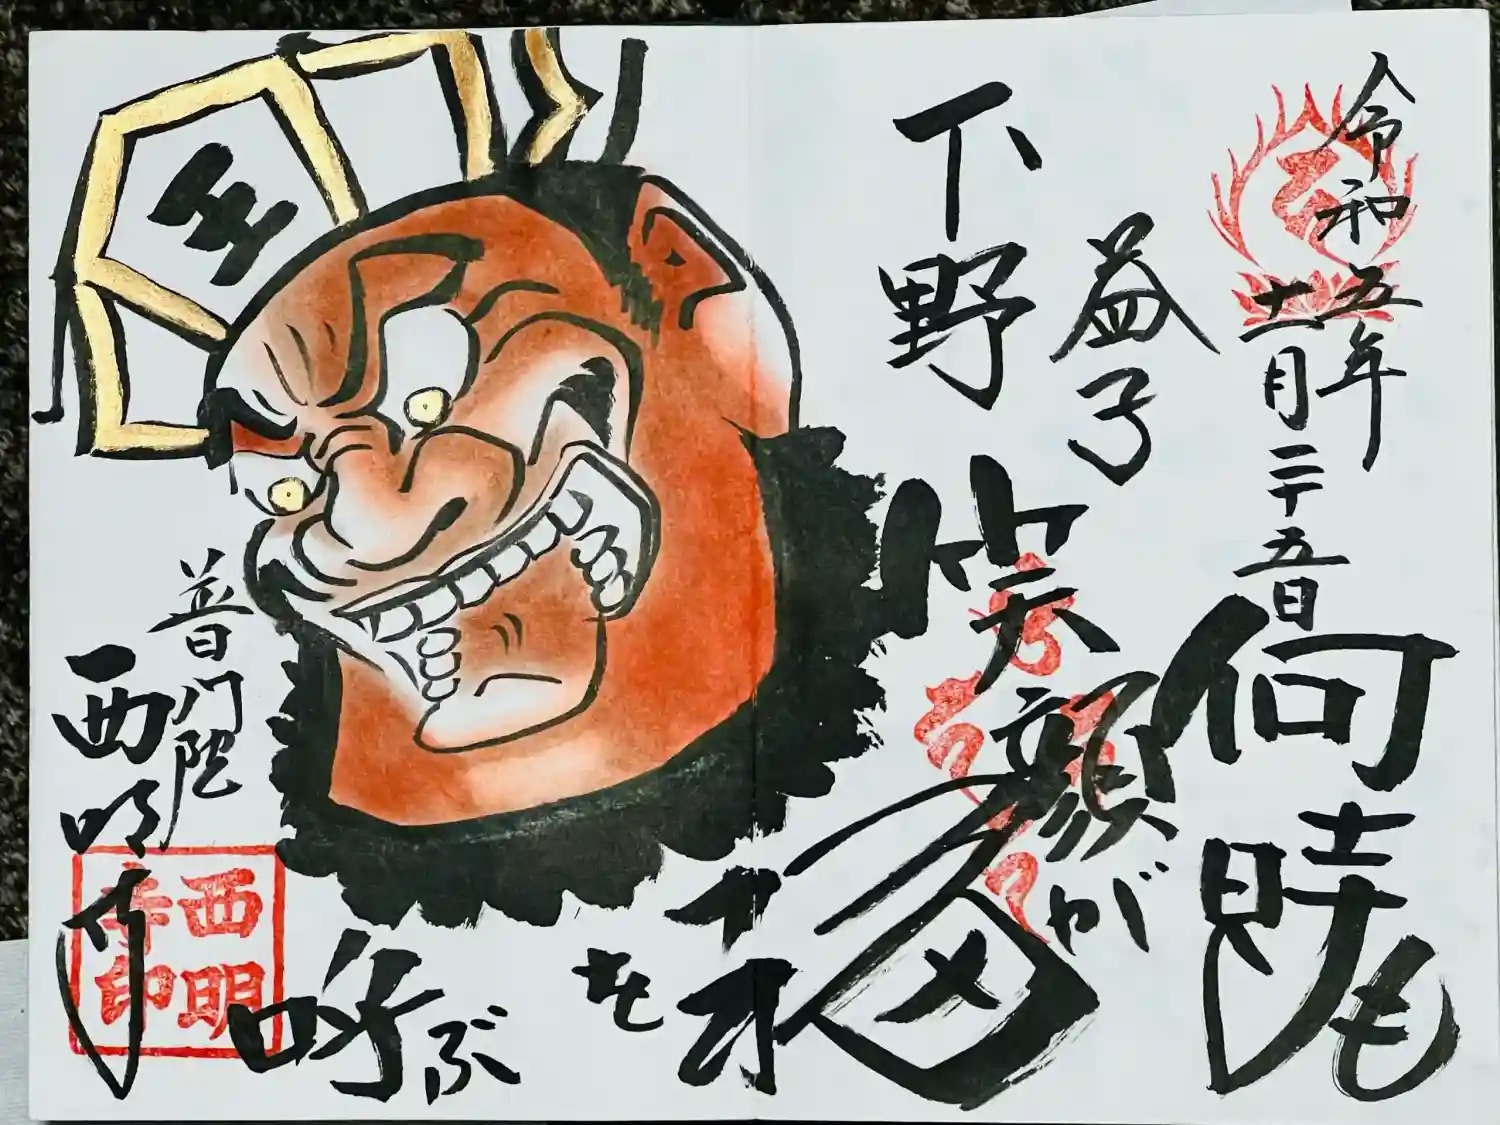 令和五年
十一月二十五日
何時も
益子
下野
笑顔が
福を
呼ぶ
王
普門院
西明寺
西明
寺印